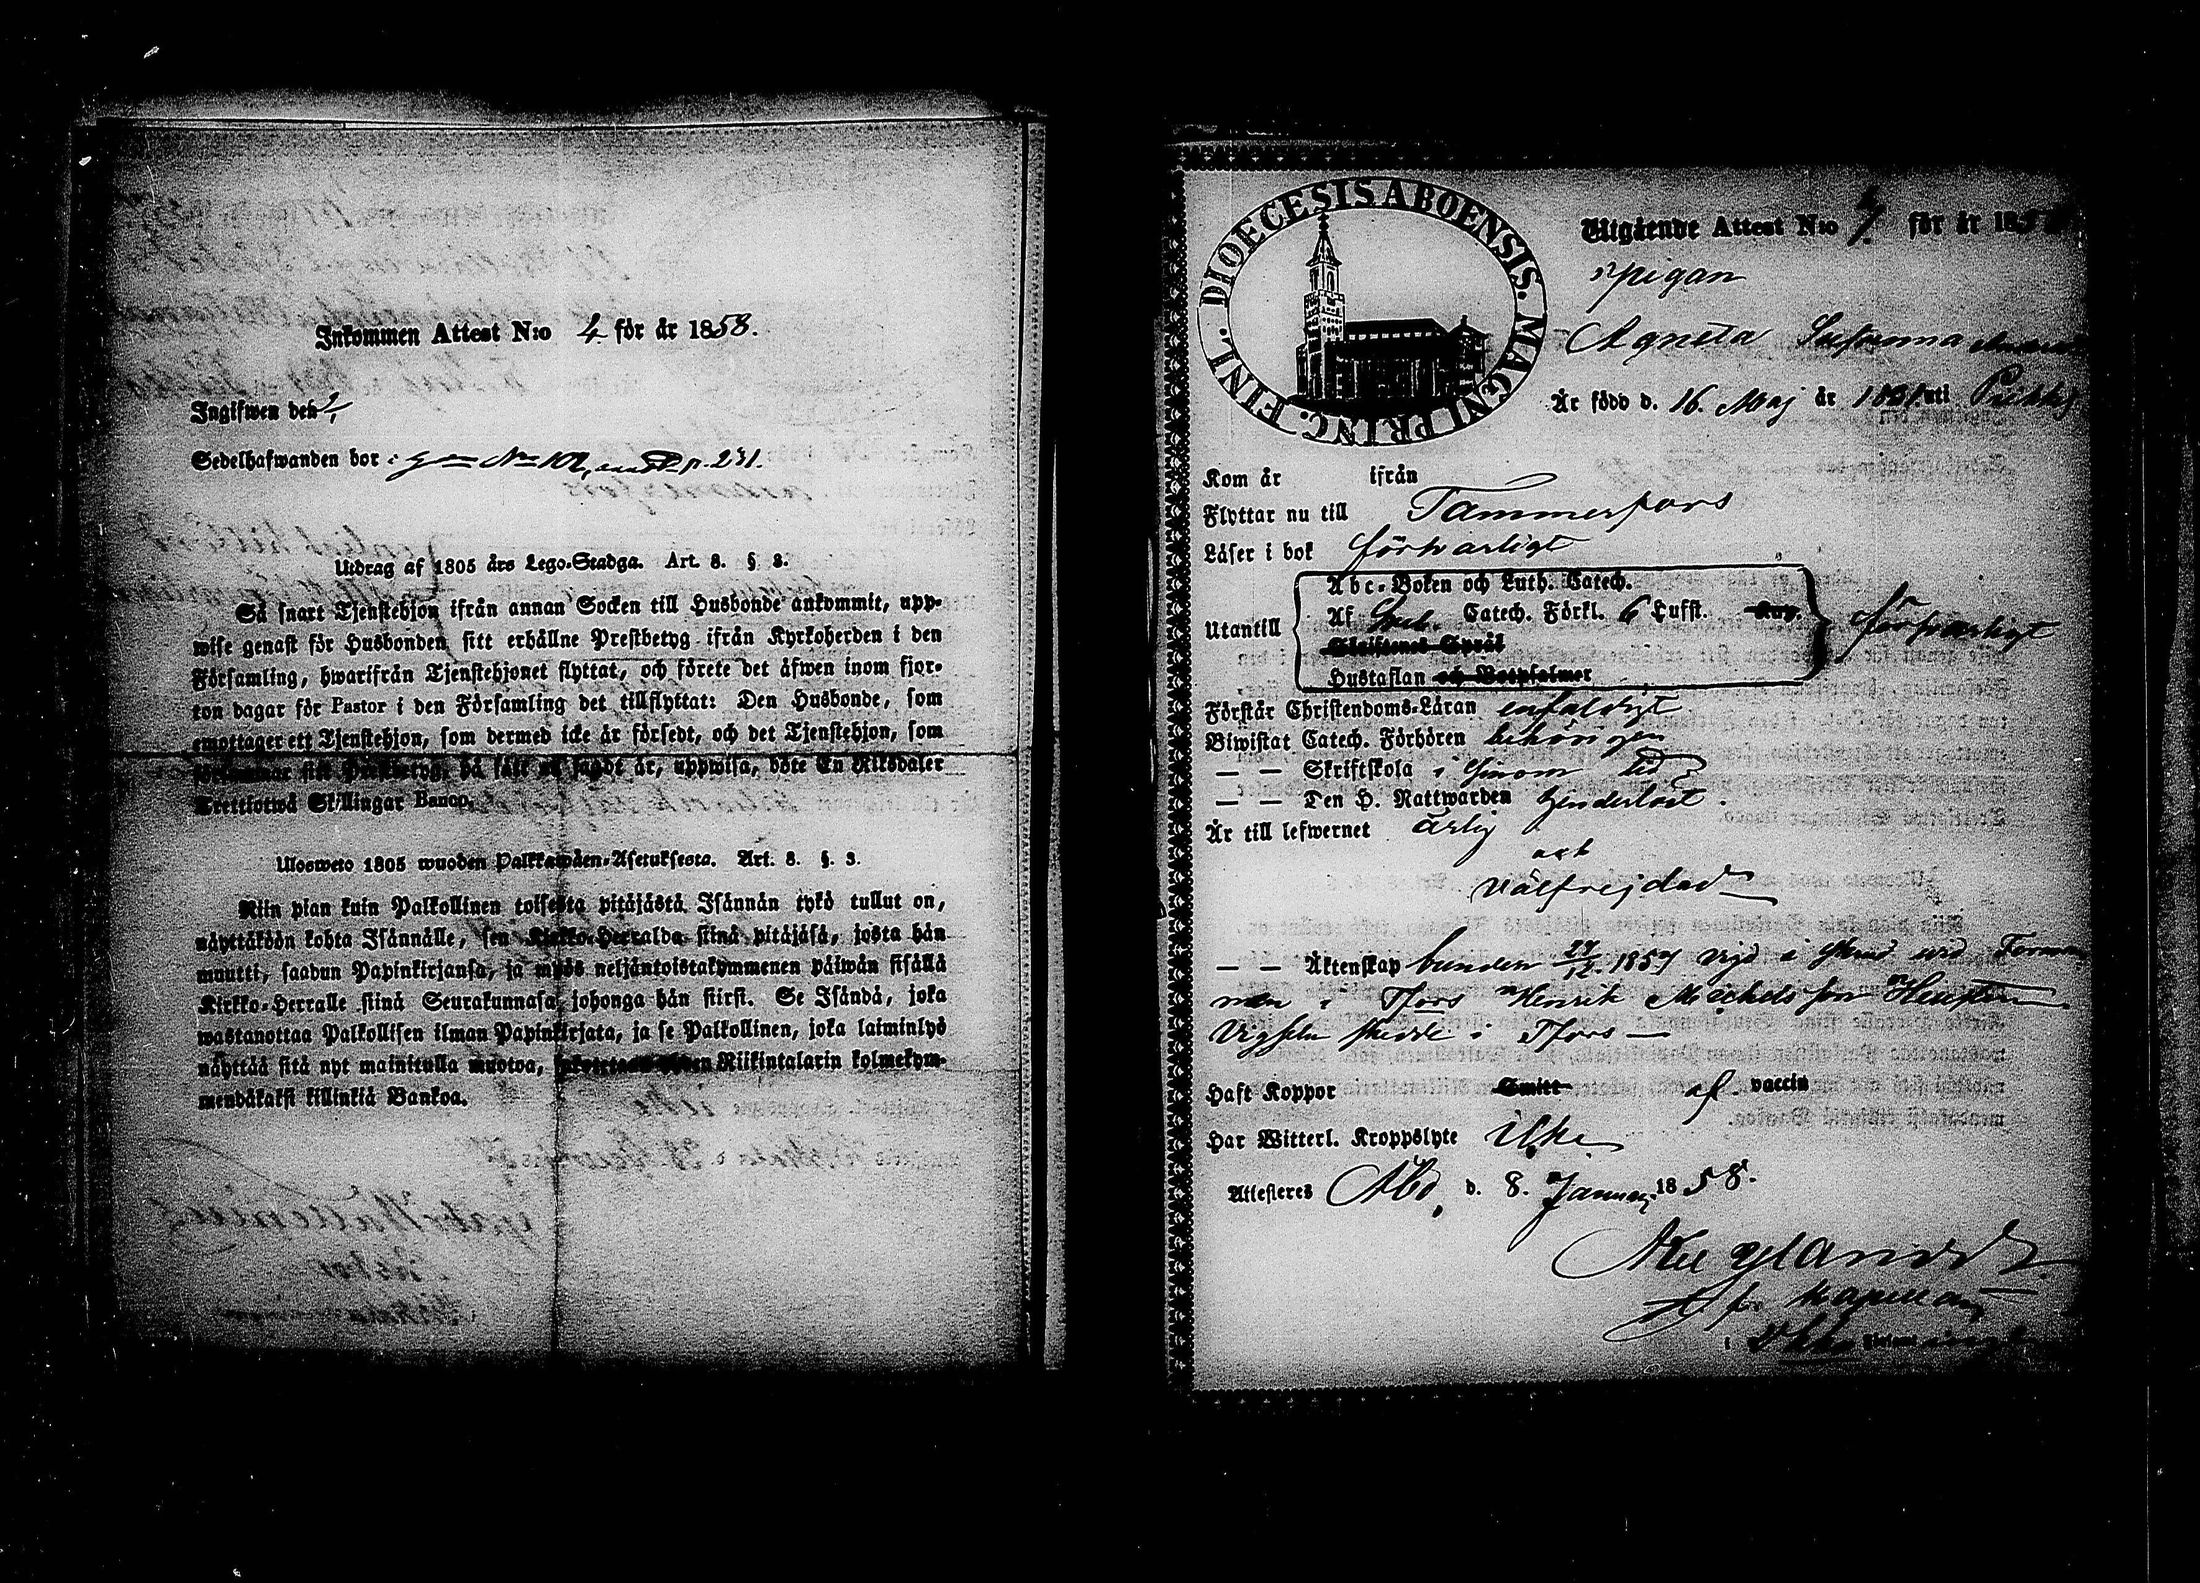 Inkommen Attest N:o 4 för år 1858.
Ingifwen den
Sedelhafwanden bor i N:o 102, p. 231.
Utdrag af 1805 års Lego-Stadga. Art. 8. §. 3.
Så snart Tjenstehjon ifrån annan Socken till Husbonde ankommit, upp-
wise genast för Husbonden sitt erhållne Prestbetyg ifrån Kyrkoherden i den
Församling, hwarifrån Tjenstehjonet flyttat, och förete det äfwen inom fjor-
ton dagar för Pastor i den Församling det tillflyttat: Den Husbonde, som
emottager ett Tjenstehjon, som dermed icke är försedt, och det Tjenstehjon, som
försummar sitt Prestbetyg, på sätt nu sagdt är, uppwisa, böte En Riksdaler
Trettiotwå Skillingar Banco.
Ulosweto 1805 wuoden Palkkawäen-Asetuksesta. Art. 8. §. 3.
Niin pian kuin Palkollinen toisesta pitäjästä Isännän tykö tullut on,
näyttäköön kohta Isännälle, sen Kirkko-Herralda siinä pitäjäsä, josta hän
muutti, saadun Papinkirjansa, ja myös neljäntoistakymmenen päiwän sisällä
Kirkko-Herralle siinä Seurakunnasa johonga hän siirsi. Se Isändä, joka
wastanottaa Palkollisen ilman Papinkirjata, ja se Palkollinen, joka laiminlyö
näyttää sitä nyt mainitulla muotoa, Riikintalarin kolmekym-
mendäkaksi killinkiä Bankoa.
DIOECESIS ABOENSIS. MAGNI PRINC. FINL.
Utgående Attest N:o 7. för år 1858
Pigan
Agneta Susanna
Är född d. 16. Maj år 1831 uti
Kom år ifrån
Flyttar nu till Tammerfors
Läser i bok försvarligt
Utantill
Abc-Boken och Luth. Catech.
Af Sveb. Catech. Förkl. 6 Hufst. Kap.
Skriftenes Språk
Hustaflan och Botpsalmer
försvarligt
Förstår Christendoms-Läran enfaldigt
Biwistat Catech. Förhören behörigen
— — Skriftskola i sinom tid
— — Den H. Nattwarden hinderlöst.
Är till lefwernet ärlig
och
välfrejdad
— — Äktenskap bunden 27/12 1857 vigd i stånd wid
i Tfors Henrik Michelsson
Vigseln skedde i Tfors —
Haft Koppor Smitt af vaccin
Har Witterl. Kroppslyte icke
Attesteres Åbo, d. 8. Januari 1858.